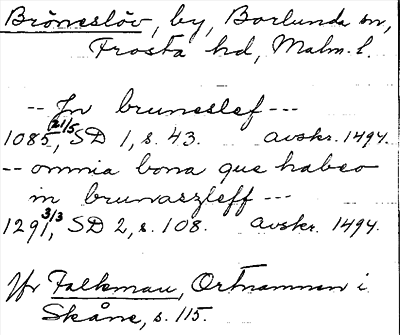 Bröneslöv, by, Borlunda sn,
Frosta hd, Malm. l.
-- In bruneslef ---
1085 21/5, SD 1, s. 43. avskr. 1494.
-- omnia bona que habeo
in brunaszleff ---
1291 3/3, SD 2, s. 108. avskr. 1494.
Jfr Falkman, Ortnamnen i
Skåne, s. 115.